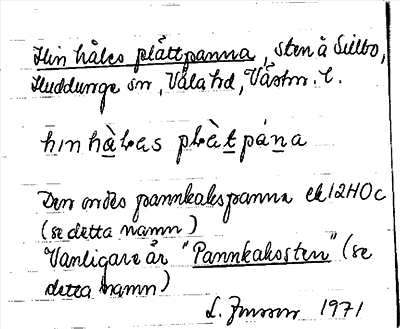 Hin håles plåttpanna, sten å Sillbo,
Huddunge sn, Våla hd, Västm. l.
hinhàles plàtpána
Den ondes pannkakspanna ek 12H0c
(se detta namn)
Vanligare är "Pannkakosten" (se
detta namn)
L. 1971